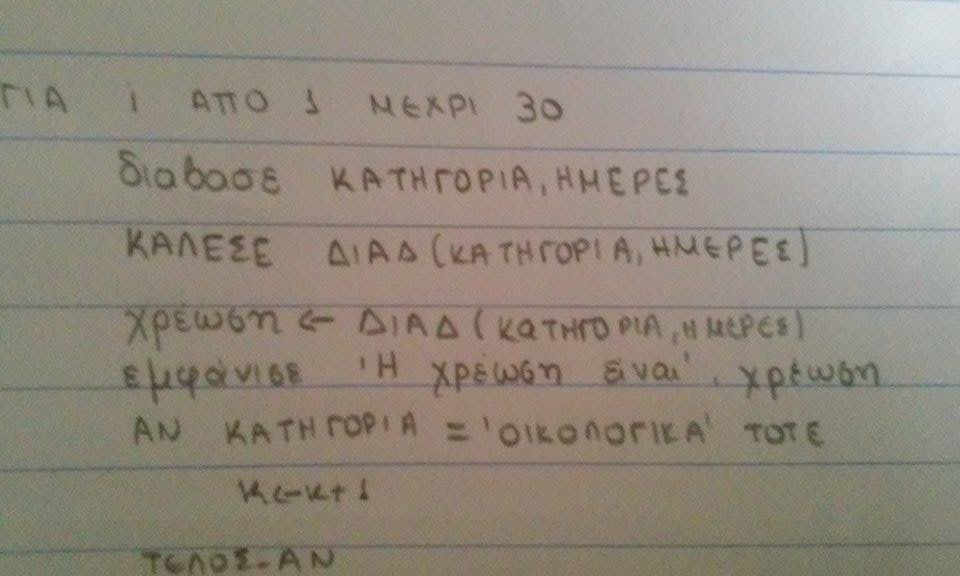 ΓΙΑ i ΑΠΟ 1 ΜΕΧΡΙ 30
διαβασε ΚΑΤΗΓΟΡΙΑ, ΗΜΕΡΕΣ
ΚΑΛΕΣΕ ΔΙΑΔ (ΚΑΤΗΓΟΡΙΑ, ΗΜΕΡΕΣ)
χρέωση ← ΔΙΑΔ (ΚΑΤΗΓΟΡΙΑ, ΗΜΕΡΕΣ)
εμφάνισε 'Η χρέωση είναι', χρέωση
ΑΝ ΚΑΤΗΓΟΡΙΑ = 'ΟΙΚΟΛΟΓΙΚΑ' ΤΟΤΕ
κ←κ+1
ΤΕΛΟΣ_ΑΝ